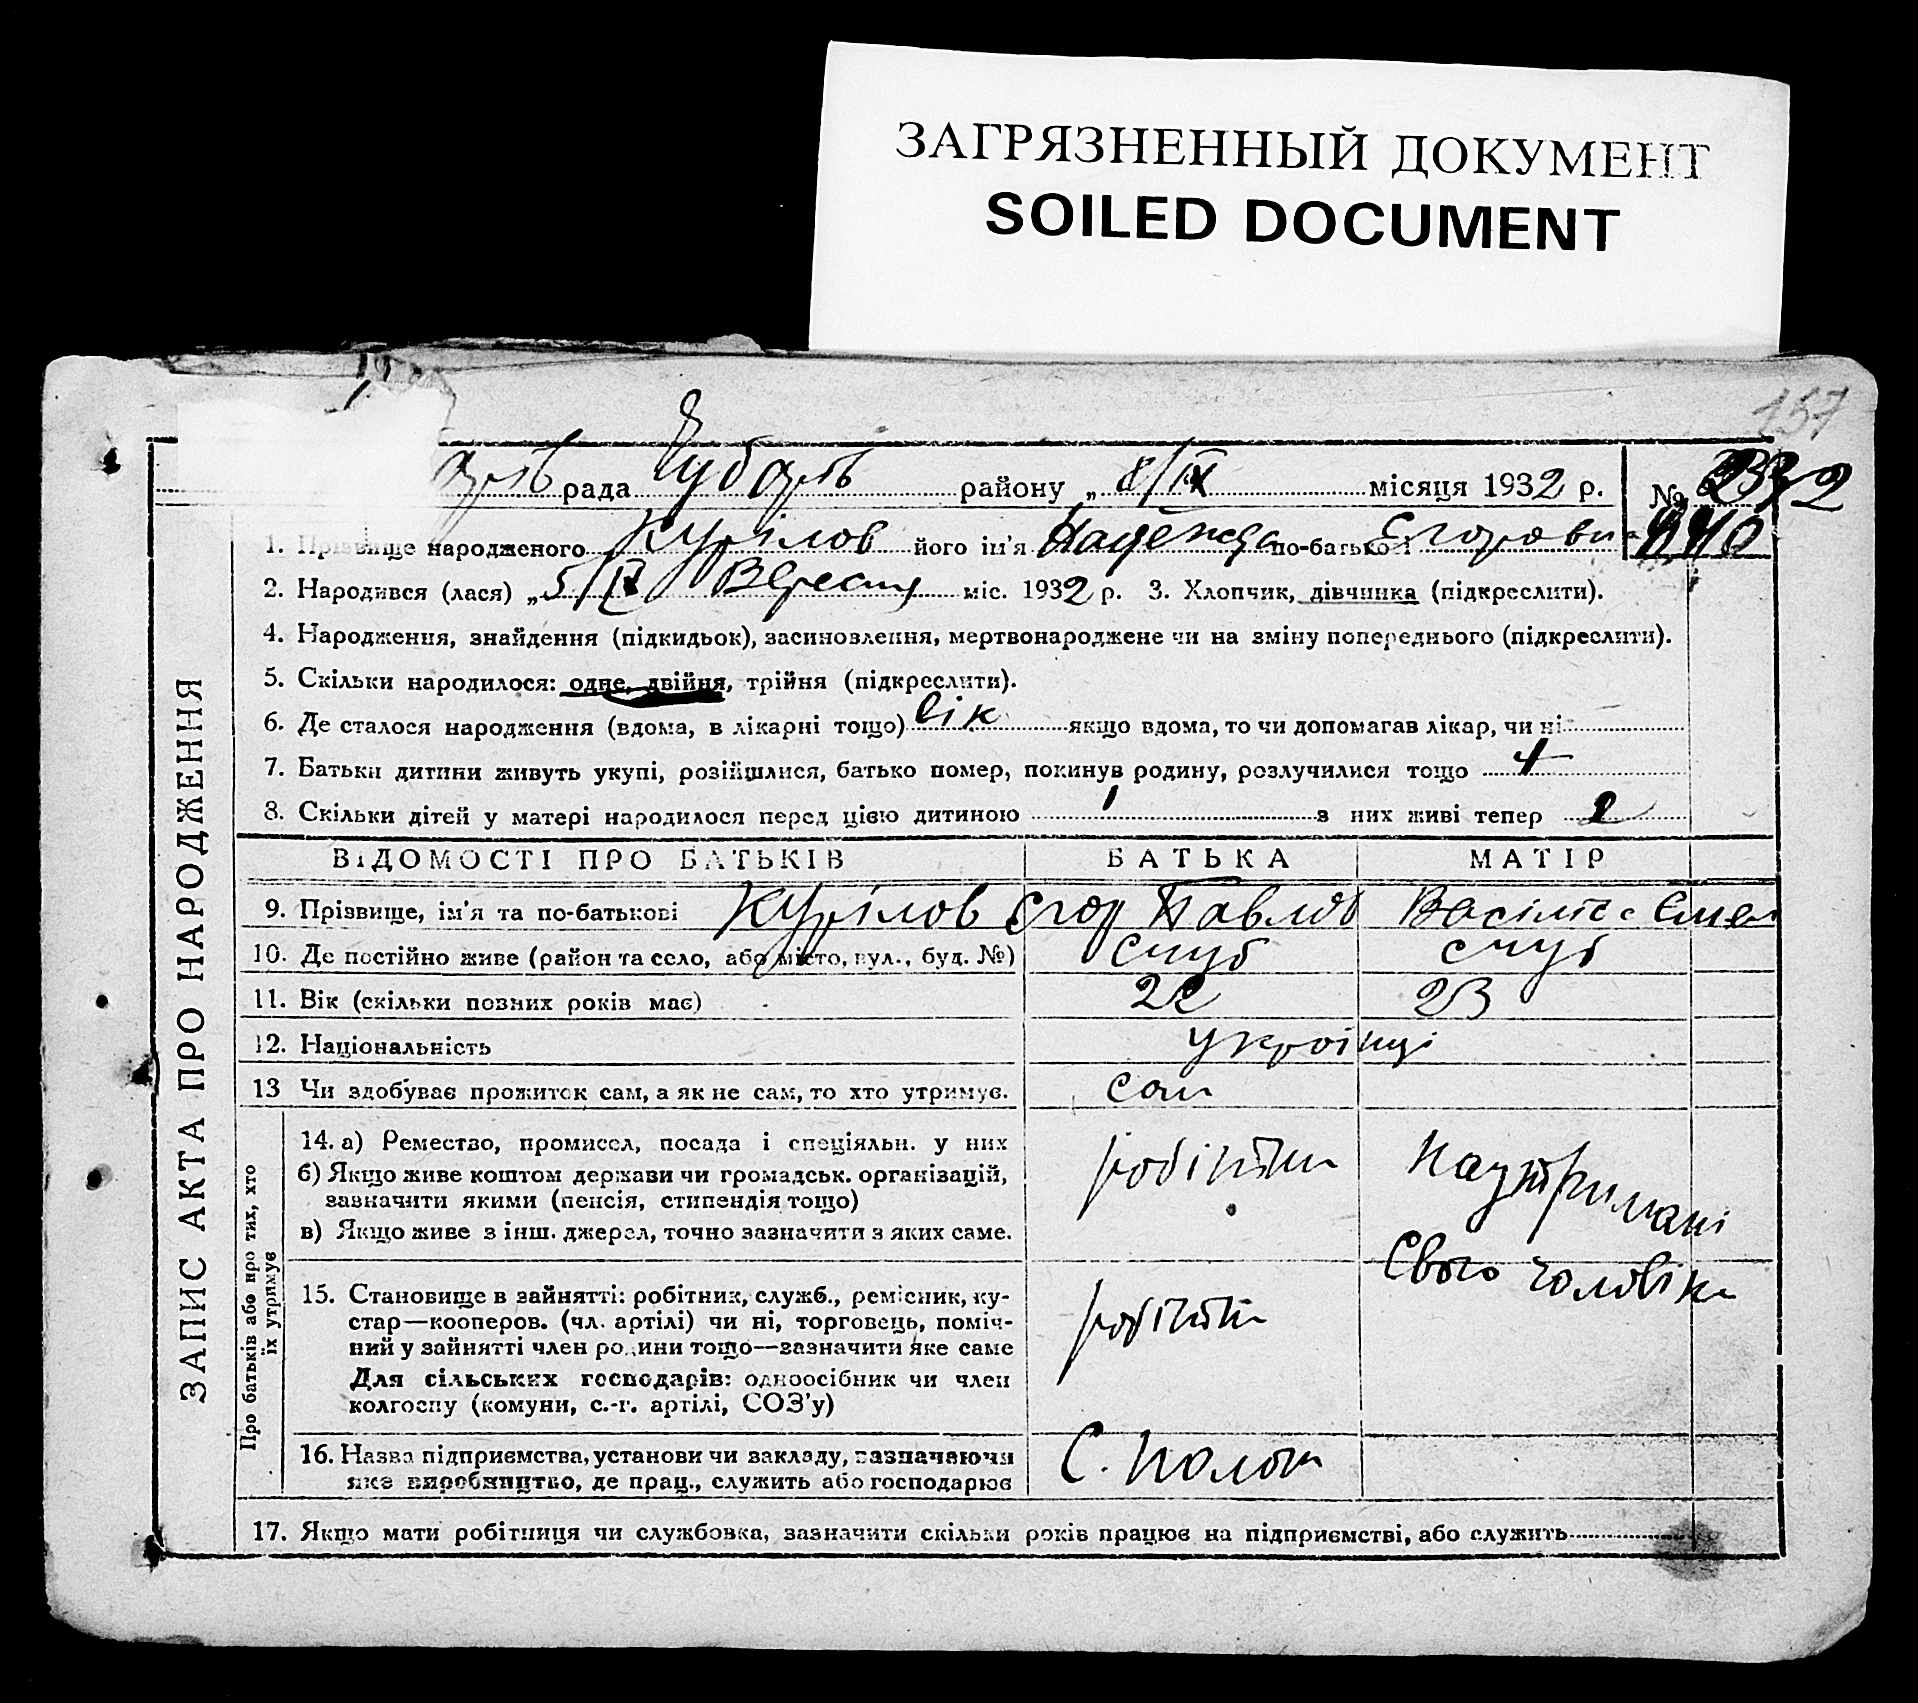 ЗАГРЯЗНЕННЫЙ ДОКУМЕНТ
SOILED DOCUMENT
157
рада Чубарь району „ 8/IX місяця 1932 р. №
1. Прізвище народженого Курілов його ім'я Надежда по-батькові Єгоровна 440
2. Народився (лася) „ 5/IX Вересня міс. 1932 р. 3. Хлопчик, дівчинка (підкреслити).
4. Народження, знайдення (підкидьок), засиновлення, мертвонароджене чи на зміну попереднього (підкреслити).
5. Скільки народилося: одне, двійня, трійня (підкреслити).
6. Де сталося народження (вдома, в лікарні тощо) лік якщо вдома, то чи допомагав лікар, чи ні
7. Батьки дитини живуть укупі, розійшлися, батько помер, покинув родину, розлучилися тощо
8. Скільки дітей у матері народилося перед цією дитиною 1 з них живі тепер 2
ВІДОМОСТІ ПРО БАТЬКІВ БАТЬКА МАТІР
9. Прізвище, ім'я та по-батькові Курілов Єгор Павлов Васіліса
10. Де постійно живе (район та село, або місто, вул., буд. №)
11. Вік (скільки повних років має) 22 23
12. Національність українці
13 Чи здобуває прожиток сам, а як не сам, то хто утримує. сам
14. а) Ремество, промисел, посада і спеціяльн. у них робітник на утрімані
б) Якщо живе коштом держави чи громадськ. організацій,
зазначити якими (пенсія, стипендія тощо)
в) Якщо живе з інш. джерел, точно зазначити з яких саме.
свого чоловіка
15. Становище в зайнятті: робітник, служб., ремісник, ку-
стар—кооперов. (чл. артілі) чи ні, торговець, поміч- робітник
ний у зайнятті член родини тощо—зазначити яке саме
Для сільських господарів: одноосібник чи член
колгоспу (комуни, с.-г. артілі, СОЗ'у)
16. Назва підприємства, установи чи закладу, зазначаючи
яке виробництво, де прац., служить або господарює
17. Якщо мати робітниця чи службовка, зазначити скільки років працює на підприємстві, або служить
ЗАПИС АКТА ПРО НАРОДЖЕННЯ
Про батьків або про тих, хто
їх утримує